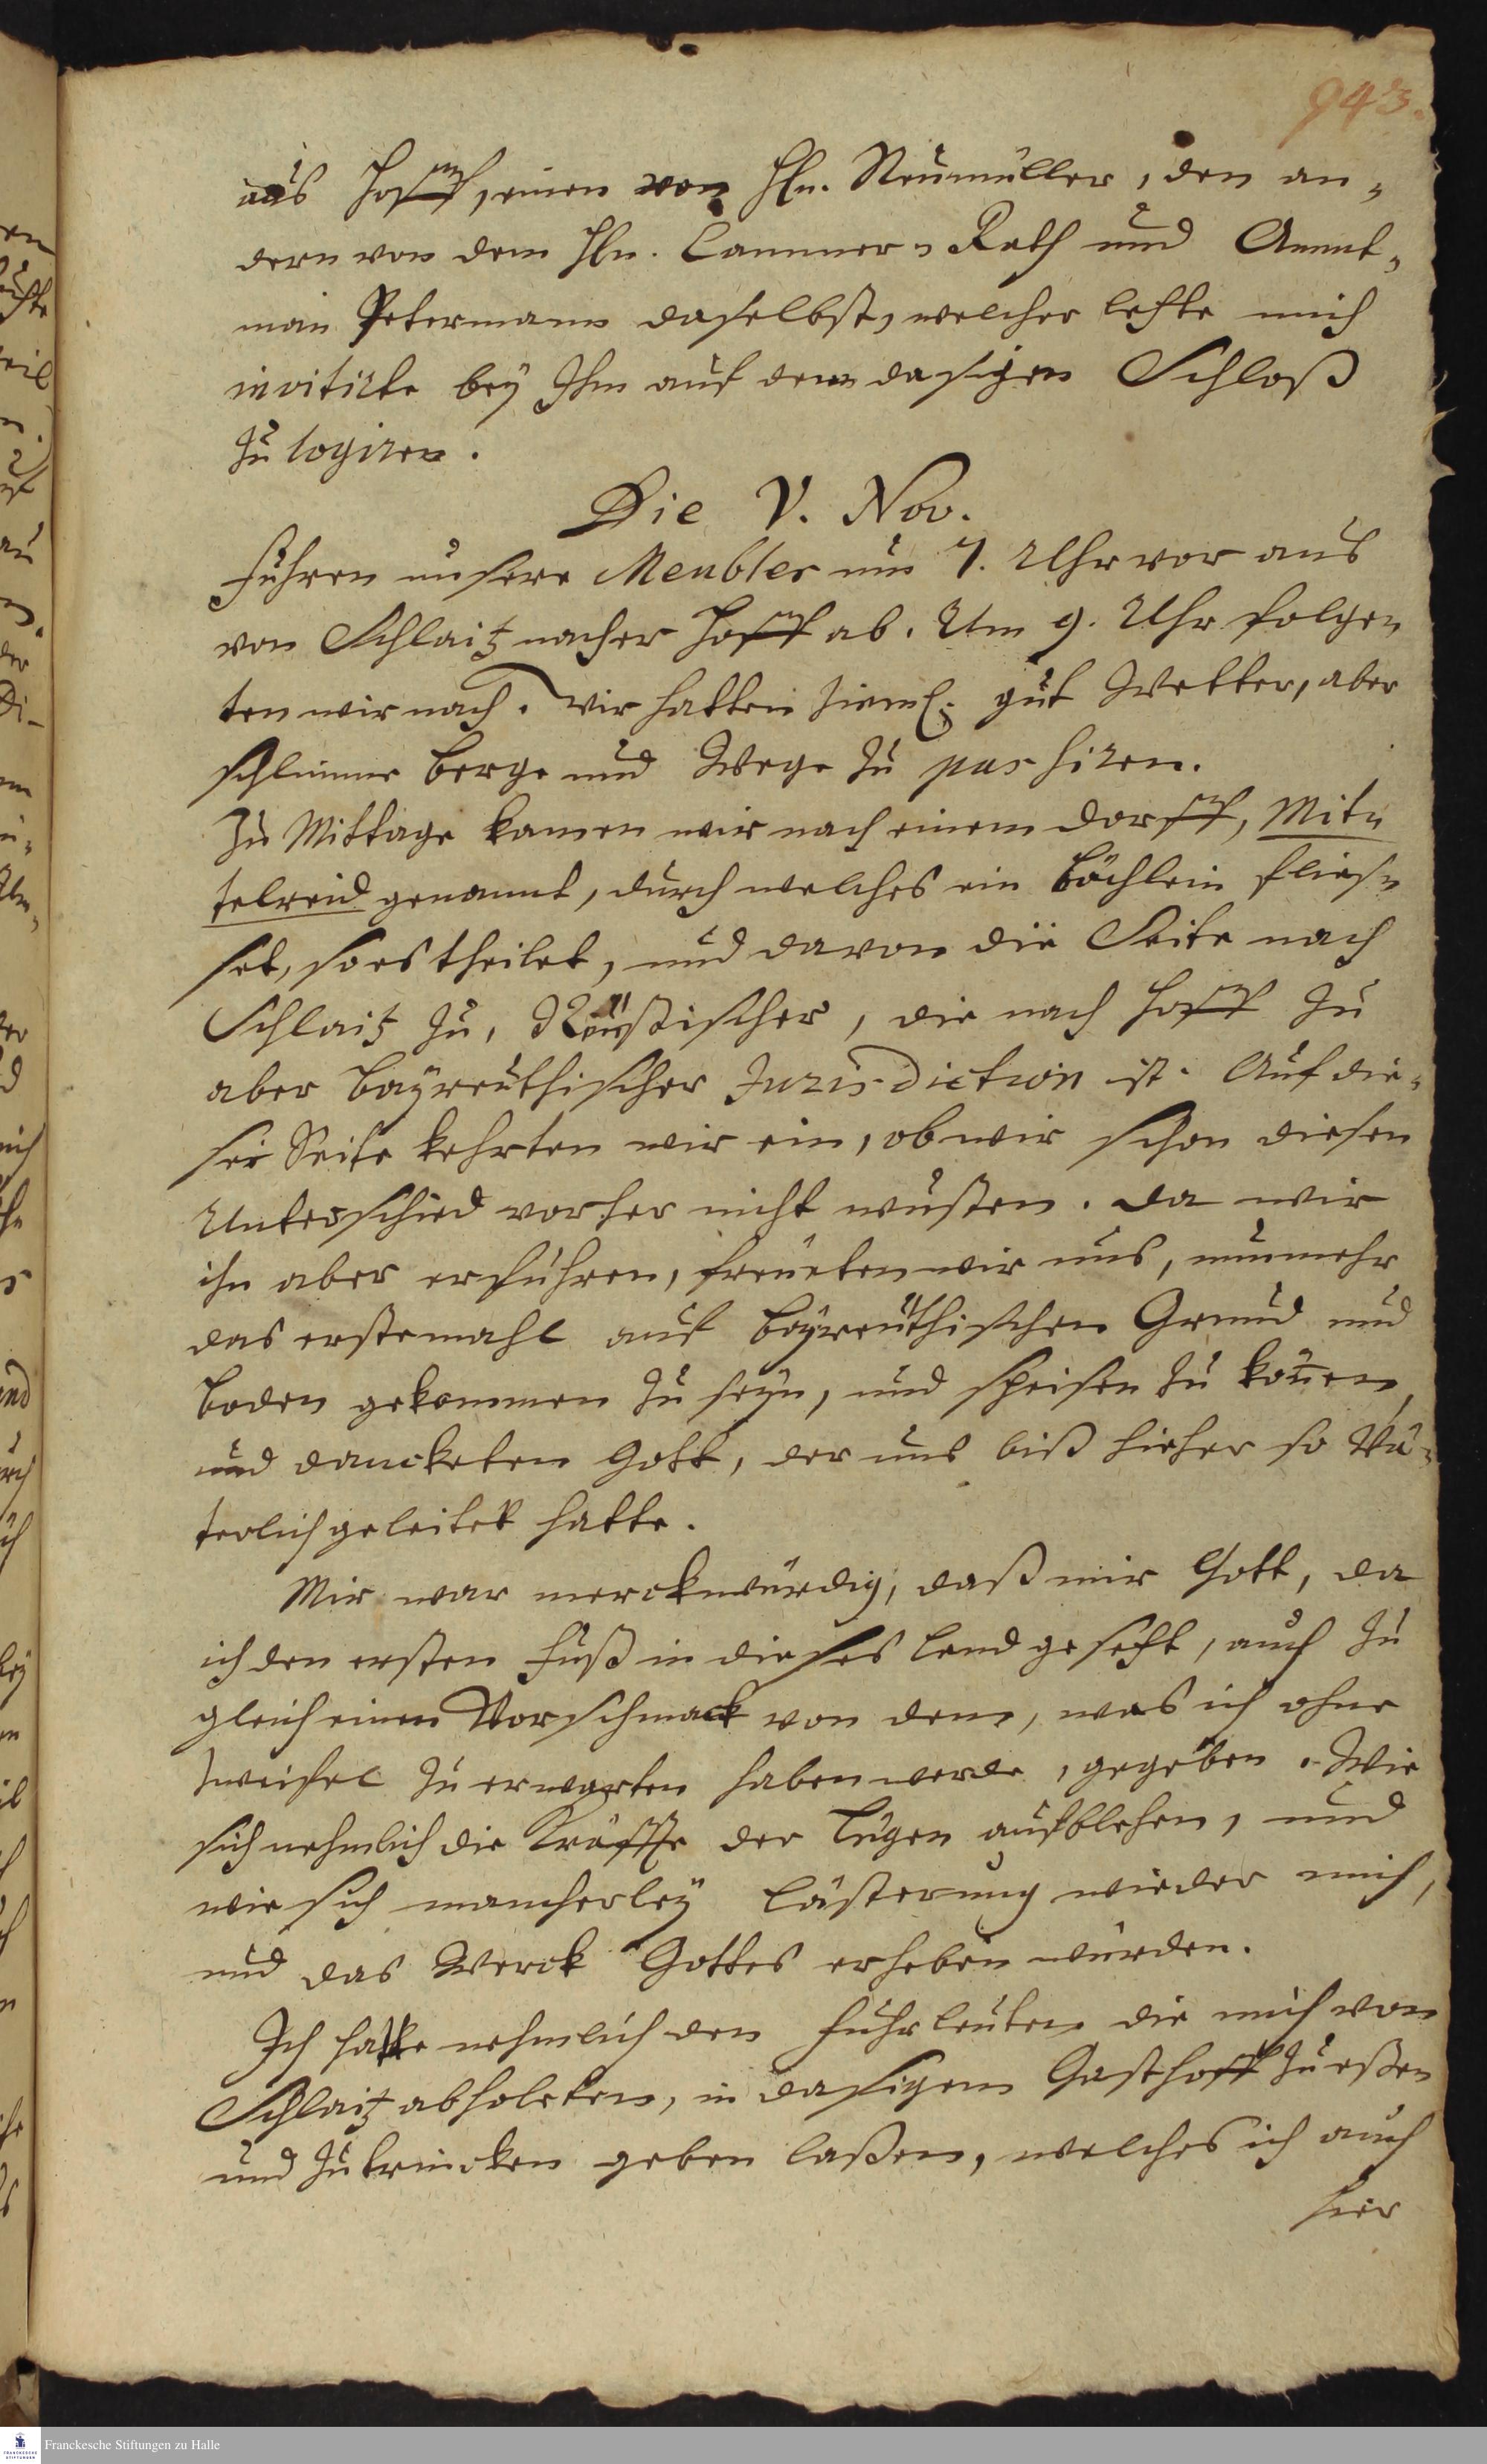 943.
aus Hoff, einen von Hln. Neumüller, den an-
dern von dem Hln. Cammer-Rath und Ammt-
man Petermann daselbst, welcher letzte mich
invitirte bey Ihm auf dem dasigen Schloß
zu logiren.
Die V. Nov.
Fuhren unsere Meubles um 7. Uhr vor aus
von Schlaitz nacher Hoff ab. Um 9. Uhr folge-
ten wir nach. Wir hatten zieml. gut Wetter, aber
schlimme Berge und Wege zu passiren.
Zu Mittage kamen wir nach einem Dorff, Mit-
telreid genannt, durch welches ein Bächlein flies-
set, so es theilet, und davon die Seite nach
Schlaitz zu, Reußischer, die nach Hoff zu
aber Bayreuthischer Jurisdiction ist. Auf die-
ser Seite kehrten wir ein, ob wir schon diesen
Unterschied vorher nicht wusten. Da wir
ihn aber erfuhren, freueten wir uns, nunmehr
das erstemahl auf Bayreuthischen Grund und
Boden gekommen zu seyn, und speisen zu können,
und danckten Gott, der uns biß hieher so Vä-
terlich geleitet hatte.
Mir war merckwürdig, daß mir Gott, da
ich den ersten Fuß in dieses Land gesetzt, auch zu
gleich einen Vorschmack von dem, was ich ohne
Zweifel zu erwarten haben werde, gegeben. Wie
sich nehmlich die Kräffte der Lügen aufblehen, und
wie sich mancherley Lästerung wieder mich,
und das Werck Gottes erheben würden.
Ich hatte nehmlich den Fuhrleuten die mich von
Schlaitz abholeten, in dasigem Gasthoff zu eßen
und zu trincken geben laßen, welches ich auch
hier
Franckesche Stiftungen zu Halle